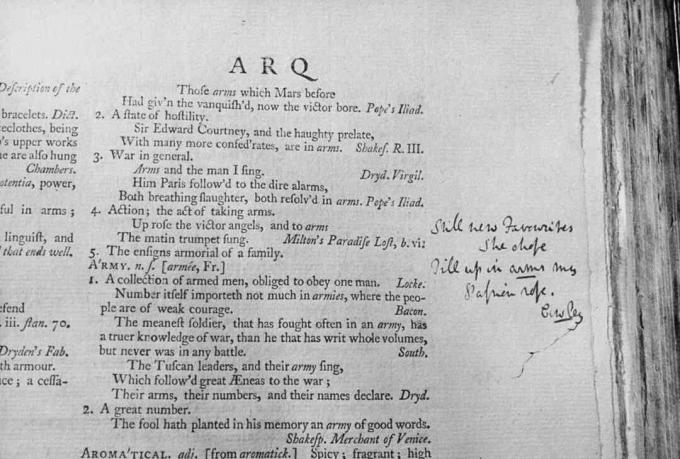 ARQ
Description of the
bracelets. Dict.
eclothes, being
's upper works
ne are also hung
Chambers.
otentia, power,
ful in arms;
linguist, and
that ends well.
efend
. iii. stan. 70.
Dryden's Fab.
th armour.
ce; a cessa-
Thoſe arms which Mars before
Had giv'n the vanquiſh'd, now the victor bore. Pope's Iliad.
2. A ſtate of hoſtility.
Sir Edward Courtney, and the haughty prelate,
With many more confed'rates, are in arms. Shakeſ. R. III.
3. War in general.
Arms and the man I ſing. Dryd. Virgil.
Him Paris follow'd to the dire alarms,
Both breathing ſlaughter, both reſolv'd in arms. Pope's Iliad.
4. Action; the act of taking arms.
Up roſe the victor angels, and to arms
The matin trumpet ſung. Milton's Paradiſe Loſt, b. vi.
5. The enſigns armorial of a family.
A'RMY. n. ſ. [armée, Fr.]
1. A collection of armed men, obliged to obey one man. Locke.
Number itſelf importeth not much in armies, where the peo-
ple are of weak courage. Bacon.
The meaneſt ſoldier, that has fought often in an army, has
a truer knowledge of war, than he that has writ whole volumes,
but never was in any battle. South.
The Tuſcan leaders, and their army ſing,
Which follow'd great Æneas to the war;
Their arms, their numbers, and their names declare. Dryd.
2. A great number.
The fool hath planted in his memory an army of good words.
Shakeſp. Merchant of Venice.
AROMA'TICAL. adj. [from aromatick.] Spicy; fragrant; high
Still new Favourites
She choſe
Till up in arms my
Paſsion roſe.
Cowley